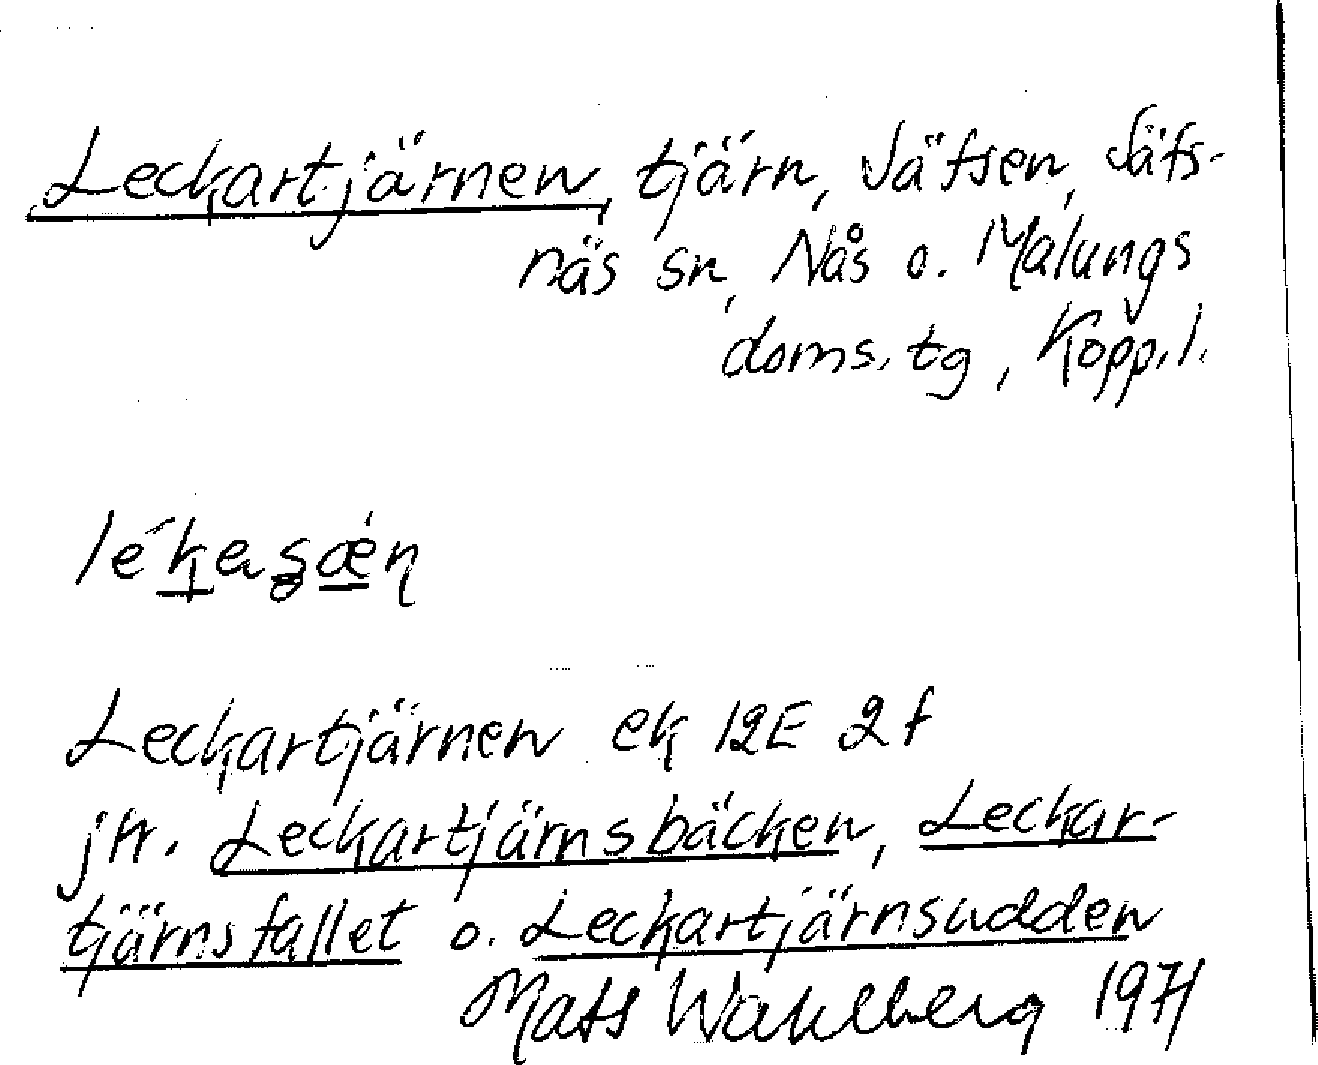 Leckartjärnen, tjärn, Säfsen, Säfs-
näs sn, Nås o. Malungs
doms. tg, Kopp. l.
Leckartjärnen ek 12E 2f
jfr. Leckartjärnsbäcken, Leckar-
tjärnsfallet o. Leckartjärnsudden
Mats Wahlberg 1971